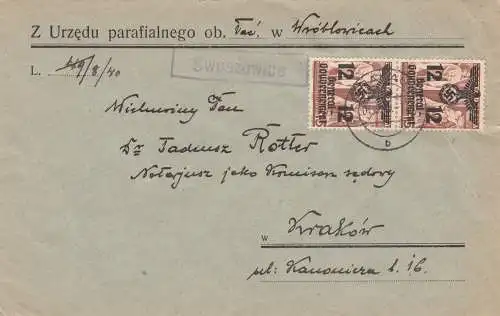 Z Urzędu parafialnego ob. łać. w Wróblowicach
L. 49/8/40
Wielmożny Pan
Dr Tadeusz Rotter
Notarjusz jako Komisarz sądowy
w Kraków
ul: Kanonicza L. 16.
12 12
General
Gouvernement
12 12
General
Gouvernement
b